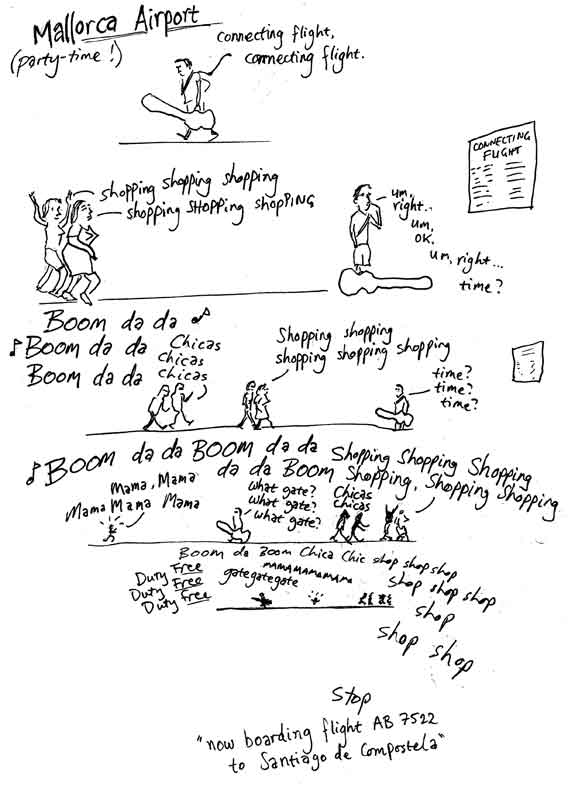 Mallorca Airport
(party-time!)
connecting flight,
connecting flight.
CONNECTING
FLIGHT
shopping shopping shopping
shopping SHOPPING shopPING
um,
right..
um,
OK.
um, right...
time?
BOOM da da
BOOM da da
BOOM da da
Chicas
chicas
chicas
Shopping shopping
shopping shopping shopping
time?
time?
time?
BOOM da da BOOM da da
da da BOOM
Shopping Shopping Shopping
Shopping, Shopping Shopping
Mama, Mama
Mama Mama Mama
what gate?
what gate?
what gate?
Chicas
Chicas
BOOM da BOOM Chica Chic shop shop shop
MAMAMAMAMAMA
gategategate
Duty Free
Duty Free
Duty Free
shop shop shop
shop
shop shop
Stop
"now boarding flight AB 7522
to Santiago de Compostela"